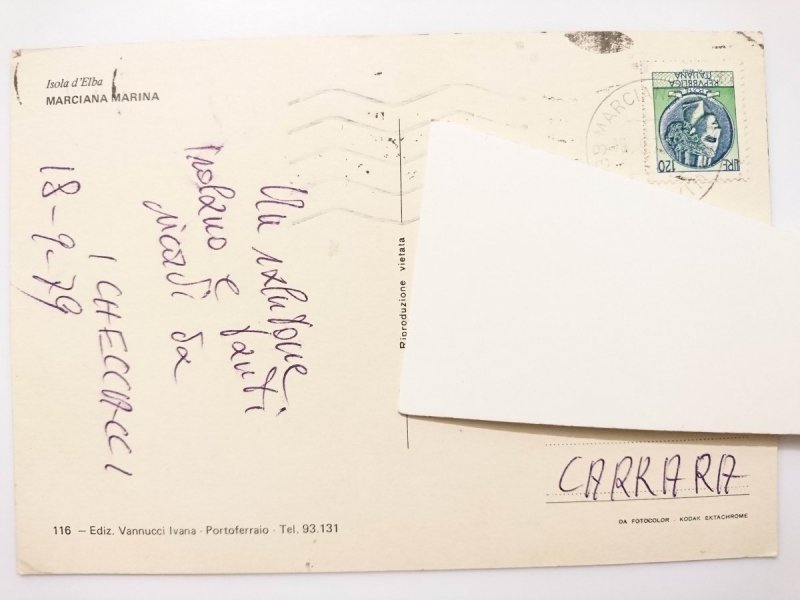 Isola d'Elba
MARCIANA MARINA
Un salutone
Isolano e tanti
ricordi da
I CHECCACCI
18-9-79
116 – Ediz. Vannucci Ivana - Portoferraio - Tel. 93.131
Riproduzione vietata
MARCI
REPVBBLICA
ITALIANA
LIRE 120
CARRARA
DA FOTOCOLOR - KODAK EKTACHROME